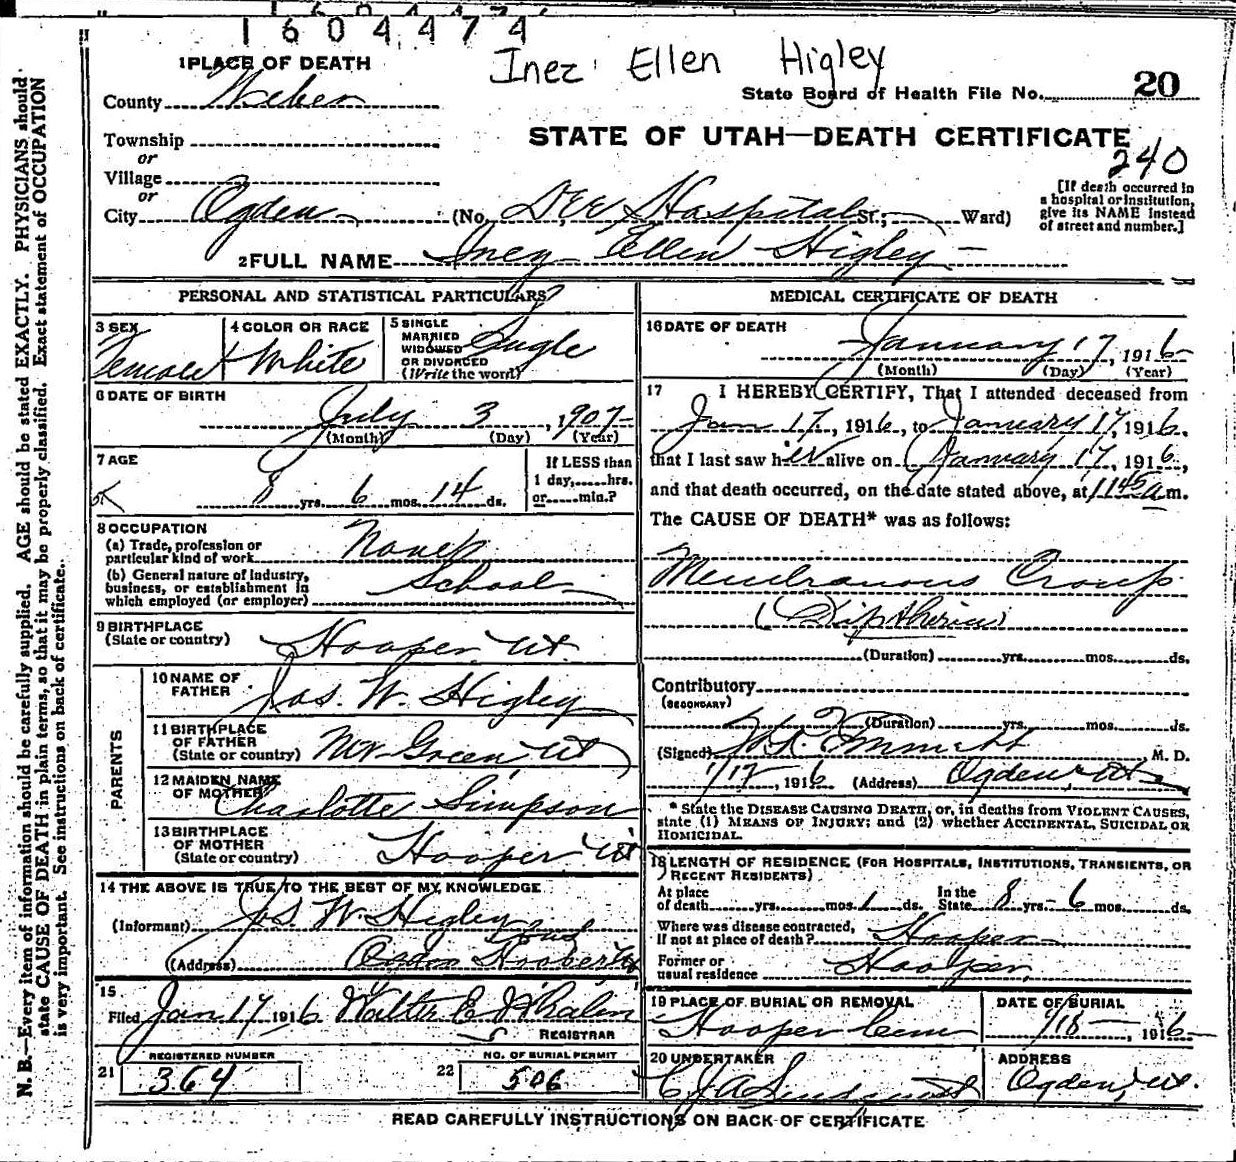 1604474
Inez Ellen Higley
1 PLACE OF DEATH
County Weber
State Board of Health File No. 20
STATE OF UTAH—DEATH CERTIFICATE
240
Township
or
Village
or
City Ogden (No. Dee Hospital St.; Ward)
[If death occurred in
a hospital or institution,
give its NAME instead
of street and number.]
2 FULL NAME Inez Ellen Higley
PERSONAL AND STATISTICAL PARTICULARS
3 SEX
Female
4 COLOR OR RACE
White
5 SINGLE
MARRIED
WIDOWED
OR DIVORCED
(Write the word)
Single
6 DATE OF BIRTH
July 3, 1907
(Month) (Day) (Year)
7 AGE
8 yrs. 6 mos. 14 ds.
If LESS than
1 day,......hrs.
or......min.?
8 OCCUPATION
(a) Trade, profession or
particular kind of work
(b) General nature of industry,
business, or establishment in
which employed (or employer)
School
9 BIRTHPLACE
(State or country)
Hooper Ut.
PARENTS
10 NAME OF
FATHER
Jas. W. Higley
11 BIRTHPLACE
OF FATHER
(State or country)
Mt Green Ut
12 MAIDEN NAME
OF MOTHER
Charlotte Simpson
13 BIRTHPLACE
OF MOTHER
(State or country)
Hooper Ut
14 THE ABOVE IS TRUE TO THE BEST OF MY KNOWLEDGE
(Informant) Jas. W. Higley
(Address) Hooper Ut
15
Filed Jan 17, 1916 Walter E Whalen
REGISTRAR
21
REGISTERED NUMBER
364
22
NO. OF BURIAL PERMIT
506
MEDICAL CERTIFICATE OF DEATH
16 DATE OF DEATH
January 17, 1916
(Month) (Day) (Year)
17 I HEREBY CERTIFY, That I attended deceased from
Jan 17, 1916, to January 17, 1916,
that I last saw her alive on January 17, 1916,
and that death occurred, on the date stated above, at 11 45 a m.
The CAUSE OF DEATH* was as follows:
Membranous Croup
(Diptheria)
(Duration) yrs. mos. ds.
Contributory
(SECONDARY)
(Duration) yrs. mos. ds.
(Signed) M. D.
1/17, 1916 (Address) Ogden Ut
* State the DISEASE CAUSING DEATH, or, in deaths from VIOLENT CAUSES,
state (1) MEANS OF INJURY; and (2) whether ACCIDENTAL, SUICIDAL OR
HOMICIDAL.
18 LENGTH OF RESIDENCE (FOR HOSPITALS, INSTITUTIONS, TRANSIENTS, OR
RECENT RESIDENTS)
At place
of death yrs. mos. 1 ds.
In the
State 8 yrs. 6 mos. ds.
Where was disease contracted,
if not at place of death? Hooper
Former or
usual residence Hooper
19 PLACE OF BURIAL OR REMOVAL
Hooper Cem
DATE OF BURIAL
1/18 1916
20 UNDERTAKER
ADDRESS
Ogden, Ut.
READ CAREFULLY INSTRUCTIONS ON BACK OF CERTIFICATE
N. B.—Every item of information should be carefully supplied. AGE should be stated EXACTLY. PHYSICIANS should
state CAUSE OF DEATH in plain terms, so that it may be properly classified. Exact statement of OCCUPATION
is very important. See instructions on back of certificate.